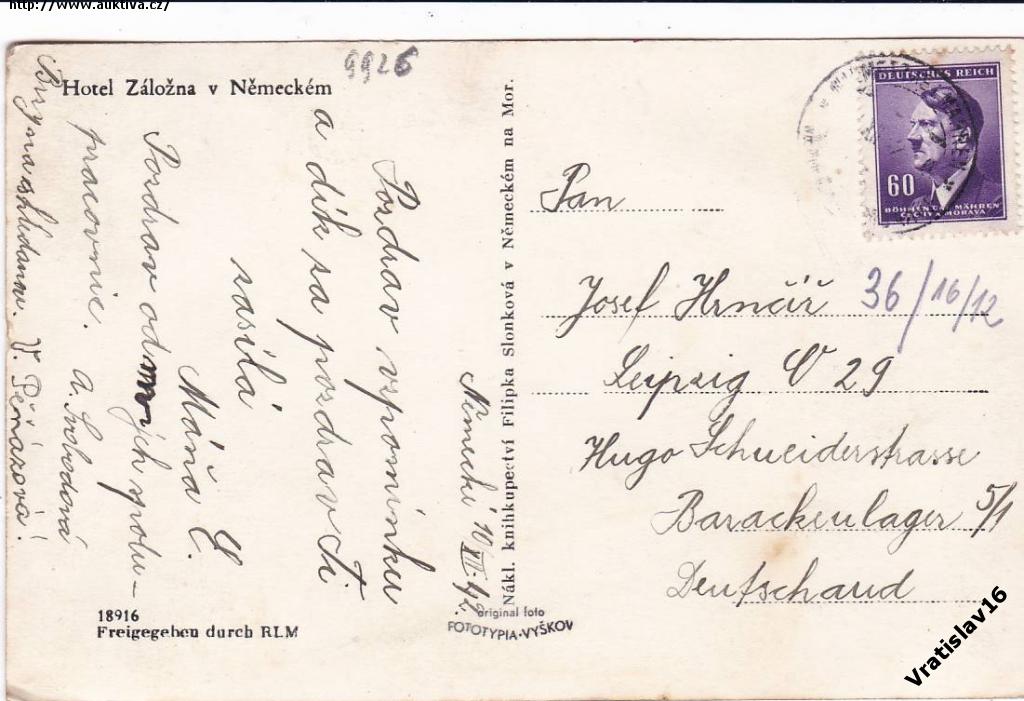 http://www.auktiva.cz/
9926
Hotel Záložna v Německém
Německé 10/XII.42.
Pozdrav vzpomínku
a dík za pozdrav Ti
zasílá
Máňa Č.
Pozdrav od mých spolu-
pracovnic. A. Svobodová
Brzy na shledanou. V. Peňázová!
18916
Freigegeben durch RLM
Nákl. knihkupectví Filipka Slonková v Německém na Mor.
original foto
FOTOTYPIA-VYŠKOV
DEUTSCHES REICH
60
BÖHMEN UND MÄHREN
ČECHY A MORAVA
Pan
Josef Hrnčíř 36/16/12
Leipzig O 29
Hugo Schneiderstrasse
Barackenlager 5/1
Deutschaud
Vratislav16